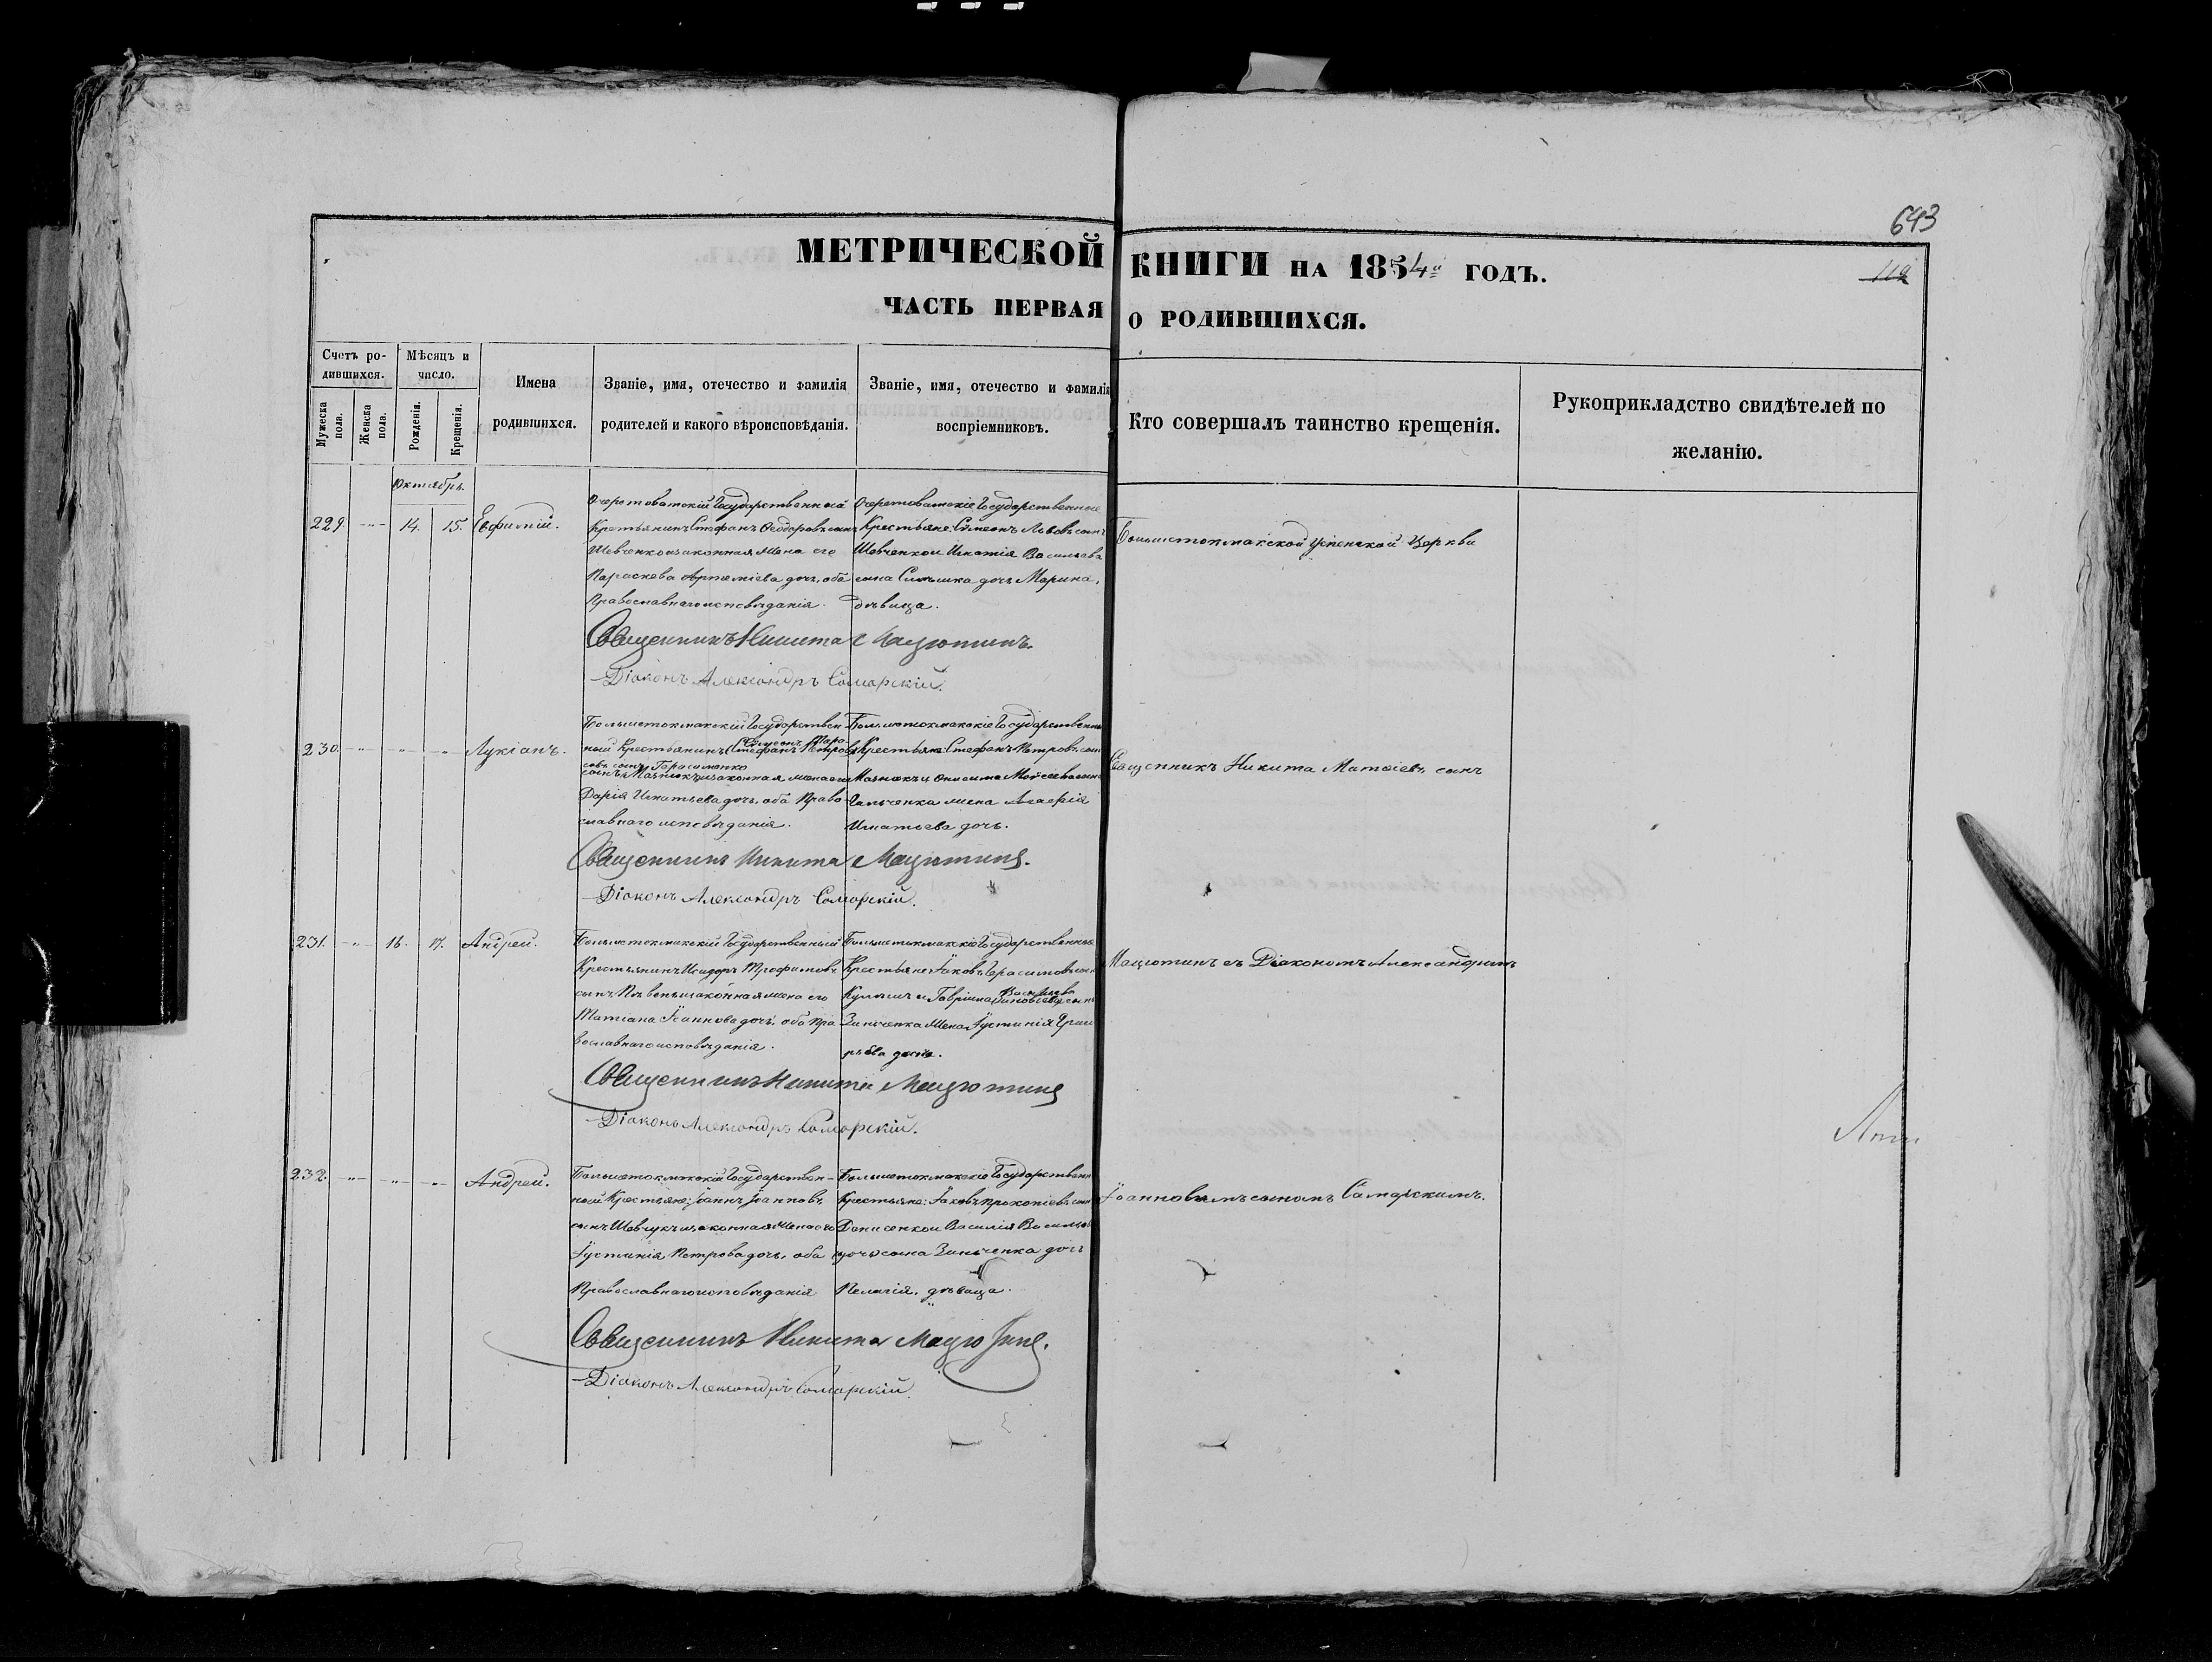 643
МЕТРИЧЕСКОЙ КНИГИ НА 1854 ГОДЪ.
ЧАСТЬ ПЕРВАЯ О РОДИВШИХСЯ.
Счетъ родившихся.
Мужеска пола.
Женска пола.
Мѣсяцъ и число.
Рожденія.
Крещенія.
Имена родившихся.
Званіе, имя, отечество и фамилія родителей и какого вѣроисповѣданія.
Званіе, имя, отечество и фамилія воспріемниковъ.
Кто совершалъ таинство крещенія.
Рукоприкладство свидѣтелей по желанію.
Октябрь.
229. 14. 15. Евфимій.
Государственный
Крестьянинъ Стефанъ Ѳеодоровъ сынъ
Шевченко и законная жена его
Параскева Артеміева дочь, оба
Православнаго исповѣданія.
Государственные
Крестьяне: Сѵмеонъ Львовъ сынъ
Шевченко и Игнатія Васильева
сына дочь Марина,
дѣвица.
Большетокмакской Успенской Церкви
Священникъ Никита Мацютинъ.
Діаконъ Александръ Самарскій.
230. Лукіанъ.
Большетокмакскій Государствен-
ный Крестьянинъ Стефанъ Петровъ
сынъ Мазнюкъ и законная жена его
Дарія Игнатьева дочь, оба Право-
славнаго исповѣданія.
Большетокмакскіе Государственные
Крестьяне: Стефанъ Петровъ сынъ
Мазнюкъ и Онисима Мойсеева сына
жена Агафія
Игнатьева дочь.
Священникъ Никита Матѳіевъ сынъ
Священникъ Никита Мацютинъ.
Діаконъ Александръ Самарскій.
231. 16. 17. Андрей.
Большетокмакскій Государственный
Крестьянинъ Исидоръ Трофимовъ
сынъ и законная жена его
Татіана Іоаннова дочь, оба Пра-
вославнаго исповѣданія.
Большетокмакскіе Государственные
Крестьяне: Іаковъ Герасимовъ сынъ
и Гавріила сына
Зинченка жена Іустинія
дочь.
Мацютинъ съ Діакономъ Александромъ
Священникъ Никита Мацютинъ
Діаконъ Александръ Самарскій.
232. Андрей.
Большетокмакскій Государствен-
ный Крестьяне: Іоаннъ Іоанновъ
сынъ Шевчукъ и законная жена его
Іустинія Петрова дочь, оба
Православнаго исповѣданія
Большетокмакскіе Государственные
Крестьяне: Іаковъ Прокопіевъ сынъ
Денисенко и Василія
сына Зинченка дочь
Пелагія, дѣвица.
Іоанновымъ сыномъ Самарскимъ.
Священникъ Никита Мацютинъ.
Діаконъ Александръ Самарскій.